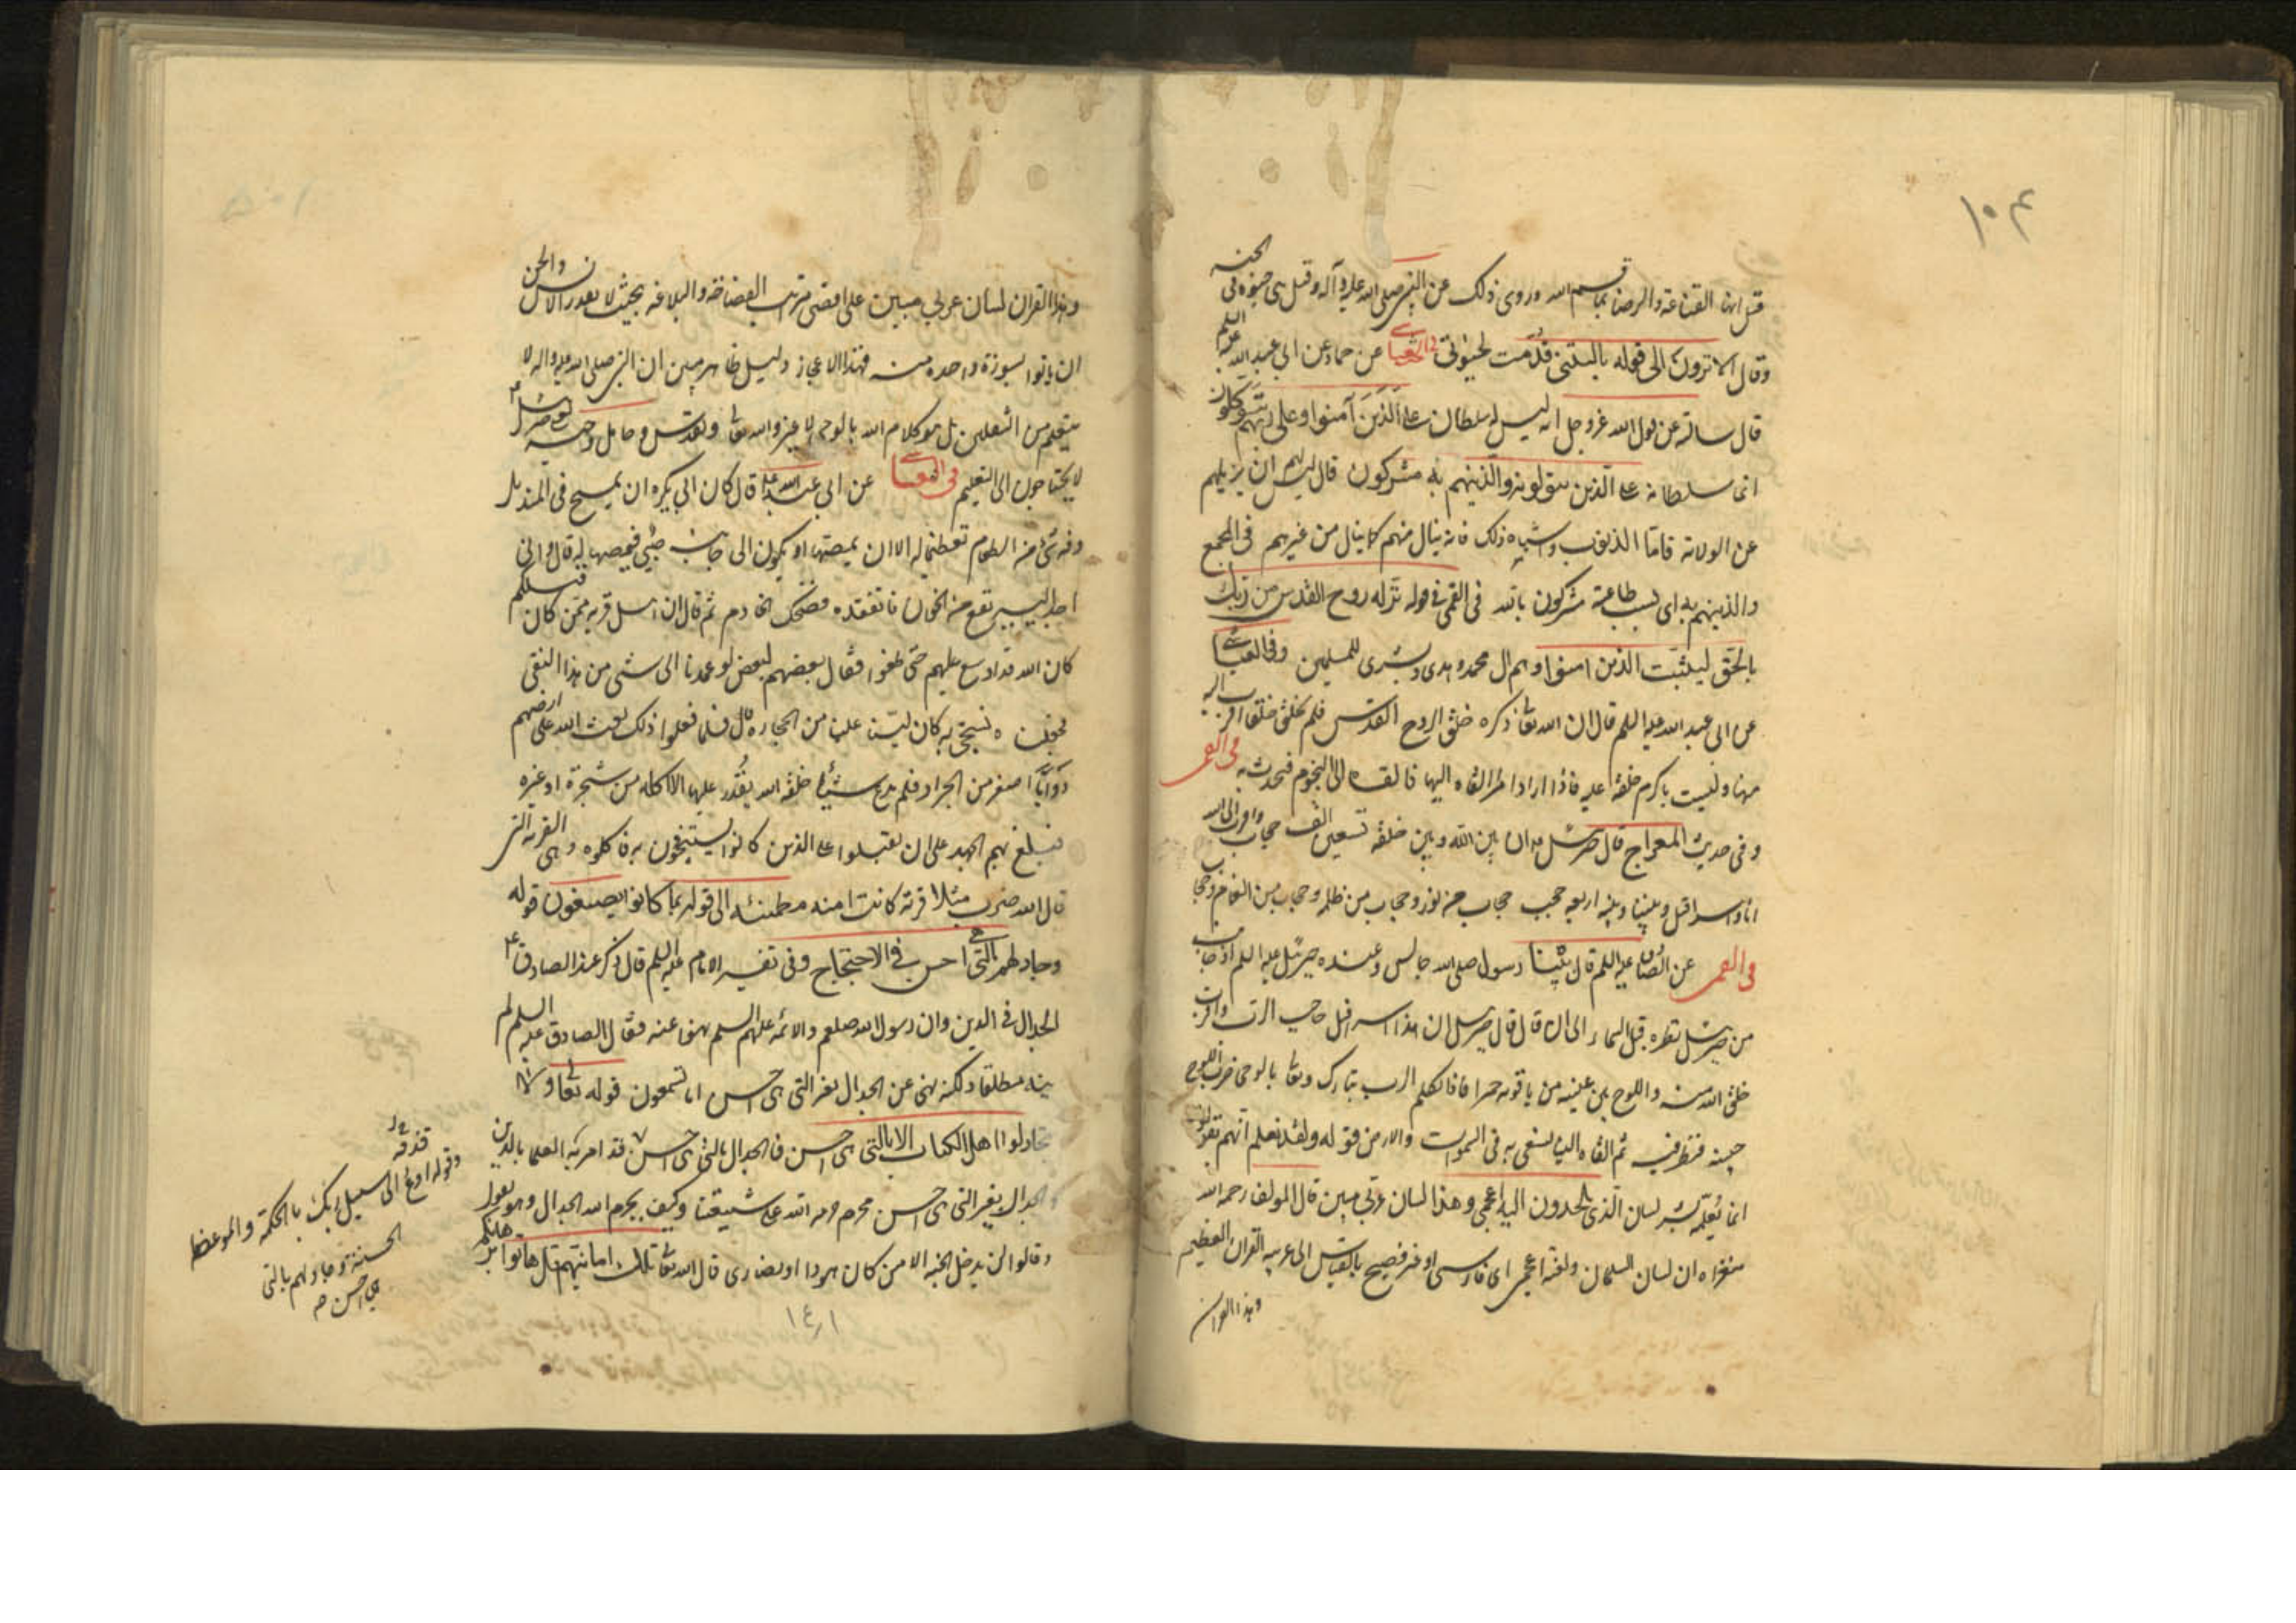 ١٠٤
قيل انها القناعة والرضا بما قسم الله وروى ذلك عن النبي صلى الله عليه وآله وقيل هى حيوة فى الجنه
وقال الا ترون الى قوله ياليتنى قدّمت لحيوتى فى العياشے عن حماد عن ابى عبد الله عليه السلم
قال سالته عن قول الله عزوجل انه ليس له سلطان على الّذين آمنوا وعلى ربهم يتوكلون
انما سلطانه على الّذين يتولونه والذينهم به مشركون قال ليس لهم ان يزيلهم
عن الولاية فامّا الذنوب واشباه ذلك فانه ينال منهم كما ينال من غيرهم فى المجمع
والذينهم به اى بسبب طاعته مشركون بالله فى القمى فى قوله نزّله روح القدس من ربك
بالحّق ليثبّت الذين امنوا وهم ال محمد وهدى وبشرى للمسلمين وفى العياشے
عن ابى عبد الله عليه السلم قال ان الله تعا ذكره خلق الروح القدس فلم يخلق خلقا اقرب اليه
منها وليست باكرم خلقه عليه فاذا اراد امرا القاه اليها فالقاه الى النجوم فجرت به فى القمى
وفى حديث المعراج قال جبرئيل ان بين الله وبين خلقه تسعين الف حجاب واقرب الى الله
انا واسرافيل وبيننا وبينه اربعه حجب حجاب من نور وحجاب من ظلمه وحجاب من الغمام وحجاب
فى القمى عن الصادق عليه السلم قال بينا رسول صلى الله جالس وعنده جبرئيل عليه السلم اذ حانت
من جبرئيل نظره قبل السماء الى ان قال قال جبرئيل ان هذا اسرافيل حاجب الرب واقرب
خلق الله منه واللوح بين عينيه من ياقوته حمرا فاذا تكلم الرب تبارك وتعا بالوحى ضرب اللوح
جبينه فنظر فيه ثم القاه الينا نسعى به فى السموات والارض قوله ولقد نعلم انهم يقولون
انما يُعلّمه بشر لسان الّذى يلحدون اليه اعجمى وهذا لسان عربّى مبين قال المولف رحمه الله
معناه ان لسان السلمان ولغته اعجمى اى فارسى او غير فصيح بالقياس الى عربيه القران العظيم
وهذا القران
وهذا القران لسان عربي مبين على اقصى مراتب الفصاحة والبلاغه بحيث لا يقدر الانس والجن
ان ياتوا بسورة واحده منه فهذا الاعجاز دليل ظاهر مبين ان النبى صلى الله عليه واله لا
يتعلم من الثقلين بل هو كلام الله بالوحى لا غير والله تعا وتقدس وحامل وحيه جبرئيل
لا يحتاجون الى التعليم فى العياشے عن ابى عبد الله قال كان ابى يكره ان يمسح فى المنديل
وفيه شئ من الطعام تعظيما له الا ان يمصّها او يكون الى جانبه صبّى فيمصها له قال وانى
اجد اليسير يقع من الخوان فاتفقده فيضحك الخادم ثم قال ان اهل قريه ممّن كان قبلكم
كان الله قد اوسع عليهم حتى طغوا فقال بعضهم لبعض لو عمدنا الى شئى من هذا النقى
فجعلناه نستنجى به كان ليّن علينا من الحجاره قال فلما فعلوا ذلك بعث الله على ارضهم
دوّابّا اصغر من الجراد فلم يدع شيئا خلقه الله يقدر عليها الا اكله من شجرة او غيره
فبلغ بهم الجهد على ان يقبلوا على الذين كانوا يستنجون به فاكلوه وهى القريه التى
قال الله ضرب مثلا قرية كانت امنه مطمئنه الى قوله بما كانوا يصنعون قوله
وجادلهم بالتى هى احسن فى الاحتجاج وفى تفسير الامام عليه السلم قال ذكر عند الصادق ع
الجدال فى الدين وان رسول الله صلعم والائمه عليهم السلم نهوا عنه فقال الصادق عليه السلم لم
ينه مطلقا ولكنه نهى عن الجدال بغير التى هى احسن اما تسمعون قوله تعا ولا
تجادلوا اهل الكتاب الا بالتى هى احسن فالجدال بالتى هى احسن قد امر به العلما بالدين
والجدال بغير التى هى احسن محرم حرمه الله على شيعتنا وكيف يحرم الله الجدال وهو يقول
وقالوا لن يدخل الجنه الا من كان هودا او نصارى قال الله تعا تلك امانيهم قل هاتوا برهانكم
وقوله ادع الى سبيل ربك بالحكمة والموعظة
الحسنة وجادلهم بالتى
هى احسن صه
١٤١